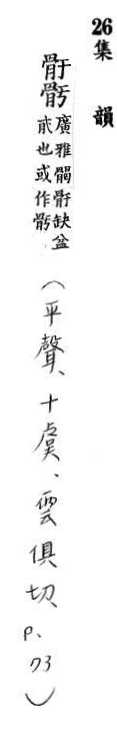 26集 韻
骬
廣雅骬缺盆
也或作
（平聲、十虞、雲俱切、p、73）